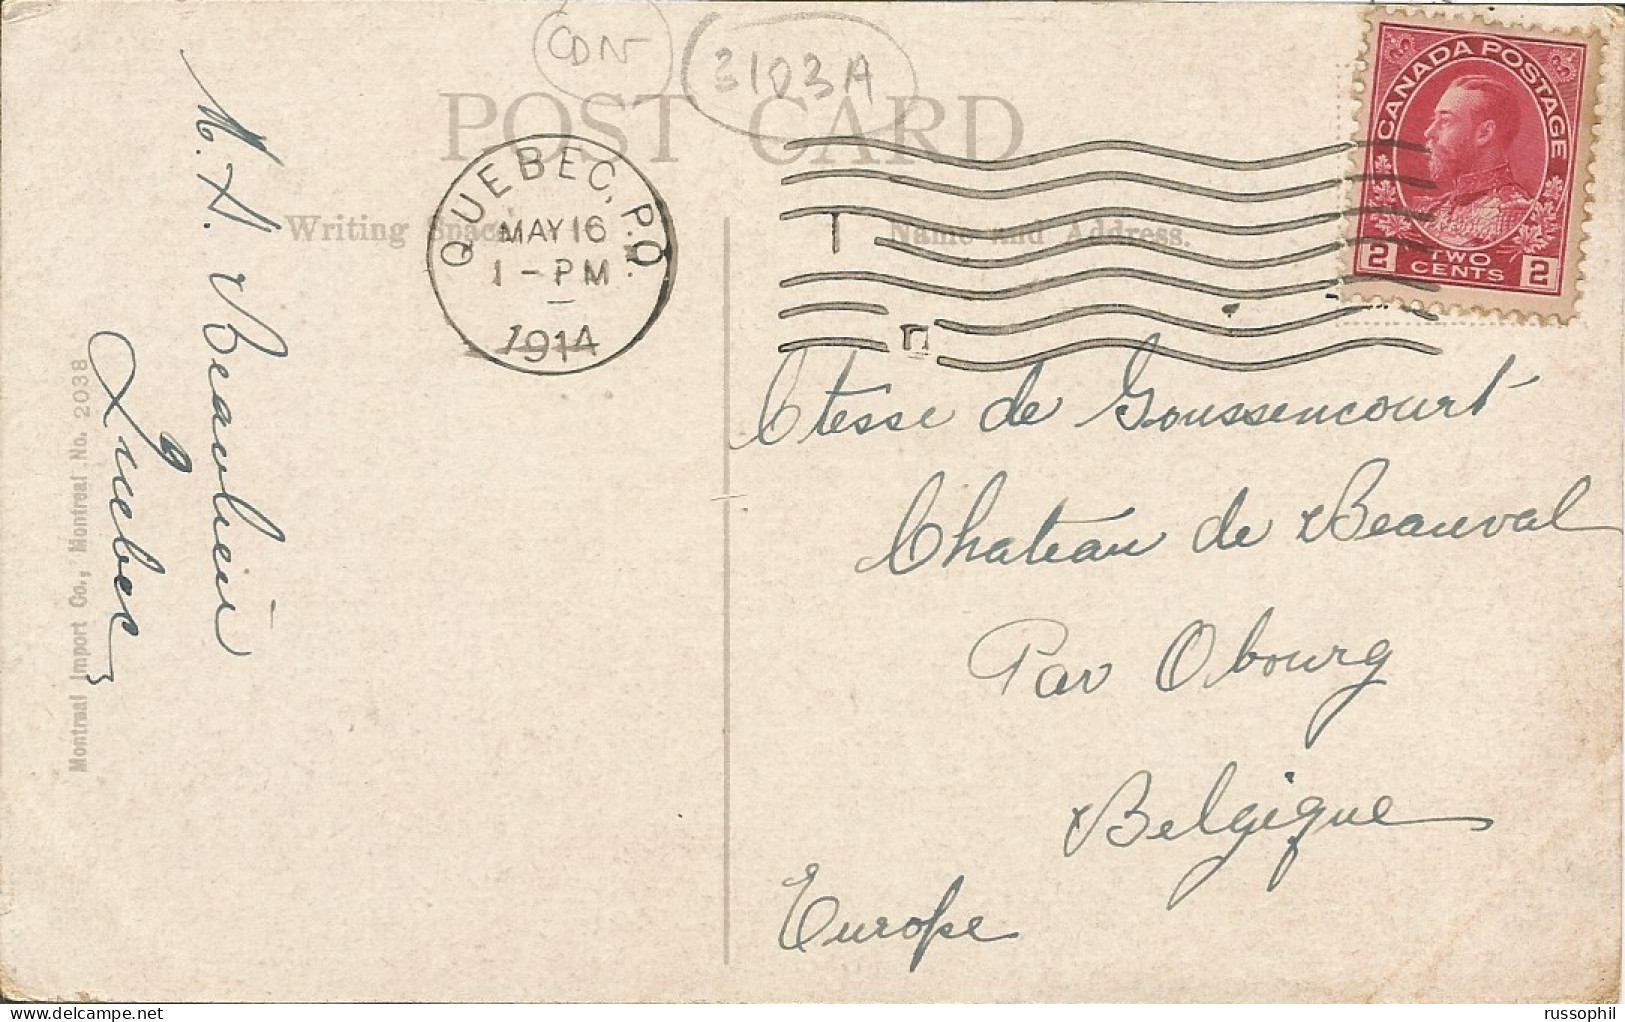 CDN
3103A
POST CARD
CANADA POSTAGE
2 TWO CENTS 2
QUEBEC, P.Q.
MAY 16
1 - PM
1914
Writing Space
Name and Address.
M. A. Beaulieu
Québec
Montreal Import Co., Montreal No. 2038
Ctesse de Goussencourt
Chateau de Beauval
Par Obourg
Belgique
Europe
russophil